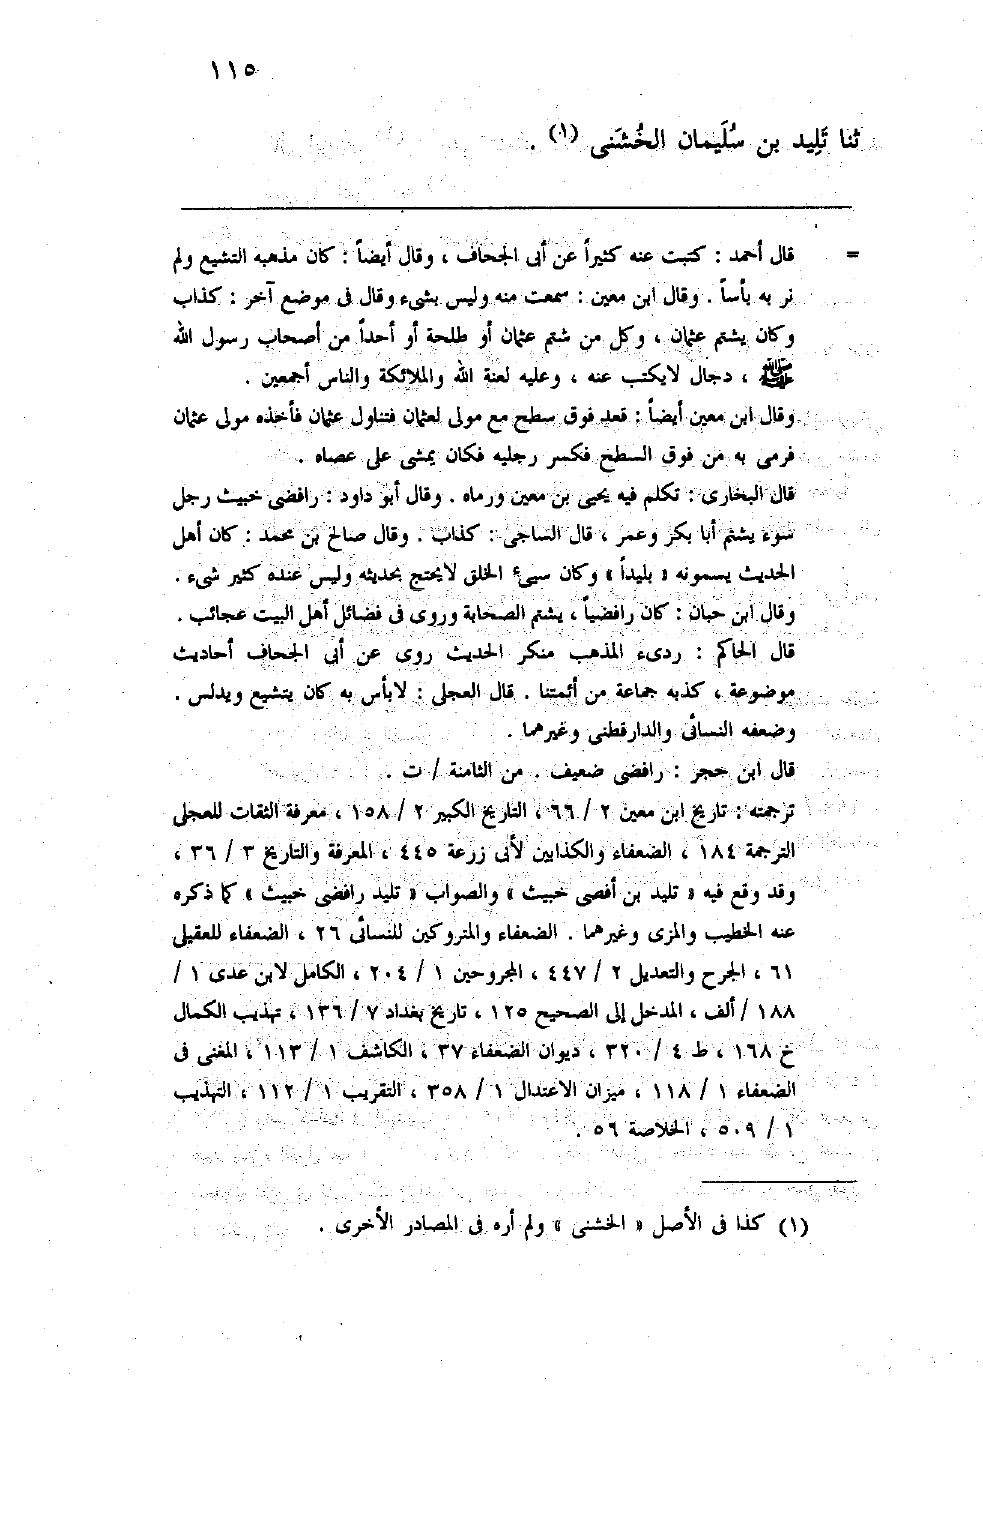 ١١٥
ثنا تَلِيد بن سُلَيمان الخُشَنى (١) .
= قال أحمد : كتبت عنه كثيراً عن أبى الجحاف ، وقال أيضاً : كان مذهبه التشيع ولم
نر به بأساً . وقال ابن معين : سمعت منه وليس بشىء وقال فى موضع آخر : كذاب
وكان يشتم عثمان ، وكل من شتم عثمان أو طلحة أو أحداً من أصحاب رسول الله
ﷺ ، دجال لايكتب عنه ، وعليه لعنة الله والملائكة والناس أجمعين .
وقال ابن معين أيضاً : قعد فوق سطح مع مولى لعثمان فتناول عثمان فأخذه مولى عثمان
فرمى به من فوق السطح فكسر رجليه فكان يمشى على عصاه .
قال البخارى : تكلم فيه يحيى بن معين ورماه . وقال أبو داود : رافضى خبيث رجل
سوء يشتم أبا بكر وعمر ، قال الساجى : كذاب . وقال صالح بن محمد : كان أهل
الحديث يسمونه « بليداً » وكان سيئ الخلق لايحتج بحديثه وليس عنده كثير شىء .
وقال ابن حبان : كان رافضياً ، يشتم الصحابة وروى فى فضائل أهل البيت عجائب .
قال الحاكم : ردىء المذهب منكر الحديث روى عن أبى الجحاف أحاديث
موضوعة ، كذبه جماعة من أئمتنا . قال العجلى : لابأس به كان يتشيع ويدلس .
وضعفه النسائى والدارقطنى وغيرهما .
قال ابن حجر : رافضى ضعيف . من الثامنة / ت .
ترجمته : تاريخ ابن معين ٢ / ٦٦ ، التاريخ الكبير ٢ / ١٥٨ ، معرفة الثقات للعجلى
الترجمة ١٨٤ ، الضعفاء والكذابين لأبى زرعة ٤٤٥ ، المعرفة والتاريخ ٣ / ٣٦ ،
وقد وقع فيه « تليد بن أفصى خبيث » والصواب « تليد رافضى خبيث » كما ذكره
عنه الخطيب والمزى وغيرهما . الضعفاء والمتروكين للنسائى ٢٦ ، الضعفاء للعقيلى
٦١ ، الجرح والتعديل ٢ / ٤٤٧ ، المجروحين ١ / ٢٠٤ ، الكامل لابن عدى ١ /
١٨٨ / ألف ، المدخل إلى الصحيح ١٢٥ ، تاريخ بغداد ٧ / ١٣٦ ، تهذيب الكمال
خ ١٦٨ ، ط ٤ / ٣٢٠ ، ديوان الضعفاء ٣٧ ، الكاشف ١ / ١١٣ ، المغنى فى
الضعفاء ١ / ١١٨ ، ميزان الاعتدال ١ / ٣٥٨ ، التقريب ١ / ١١٢ ، التهذيب
١ / ٥٠٩ ، الخلاصة ٥٦ .
(١) كذا فى الأصل « الخشنى » ولم أره فى المصادر الأخرى .